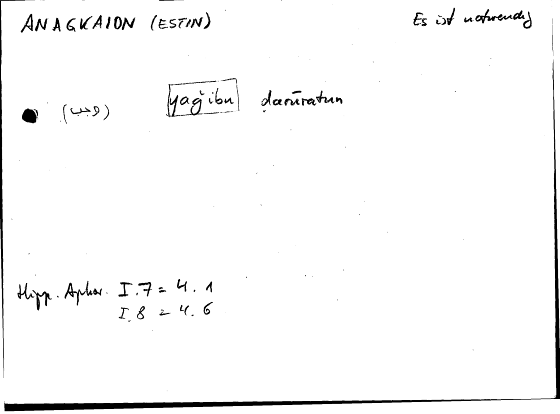 ANAGKAION (ESTIN) Es ist notwendig
(وجب) yaǧibu ḍarūratun
Hipp. Aphor. I.7 = 4.1
I.8 = 4.6